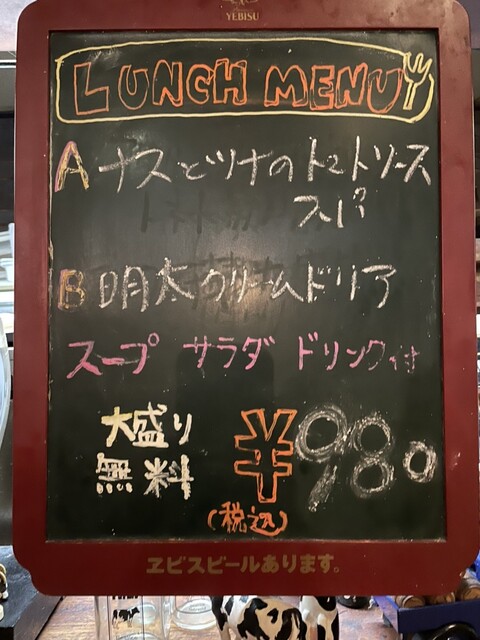 YEBISU
LUNCH MENU
A ナスとツナのトマトソース
スパ
B 明太クリームドリア
スープ サラダ ドリンク付
大盛り
無料
¥980
(税込)
ヱビスビールあります。